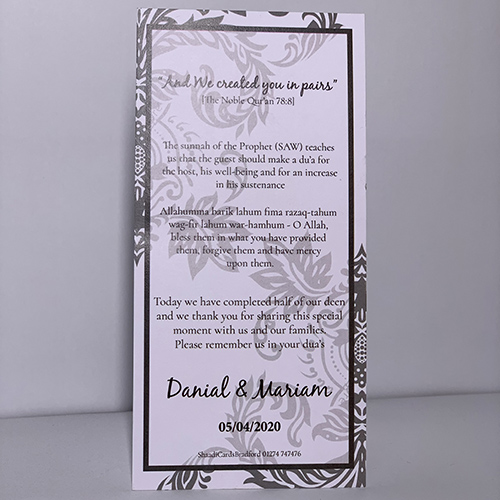 "And We created you in pairs"
[The Noble Qur'an 78:8]
The sunnah of the Prophet (SAW) teaches
us that the guest should make a du'a for
the host, his well-being and for an increase
in his sustenance
Allahumma barik lahum fima razaq-tahum
wag-fir lahum war-hamhum - O Allah,
bless them in what you have provided
them, forgive them and have mercy
upon them.
Today we have completed half of our deen
and we thank you for sharing this special
moment with us and our families.
Please remember us in your dua's
Danial & Mariam
05/04/2020
ShaadiCardsBradford 01274 747476